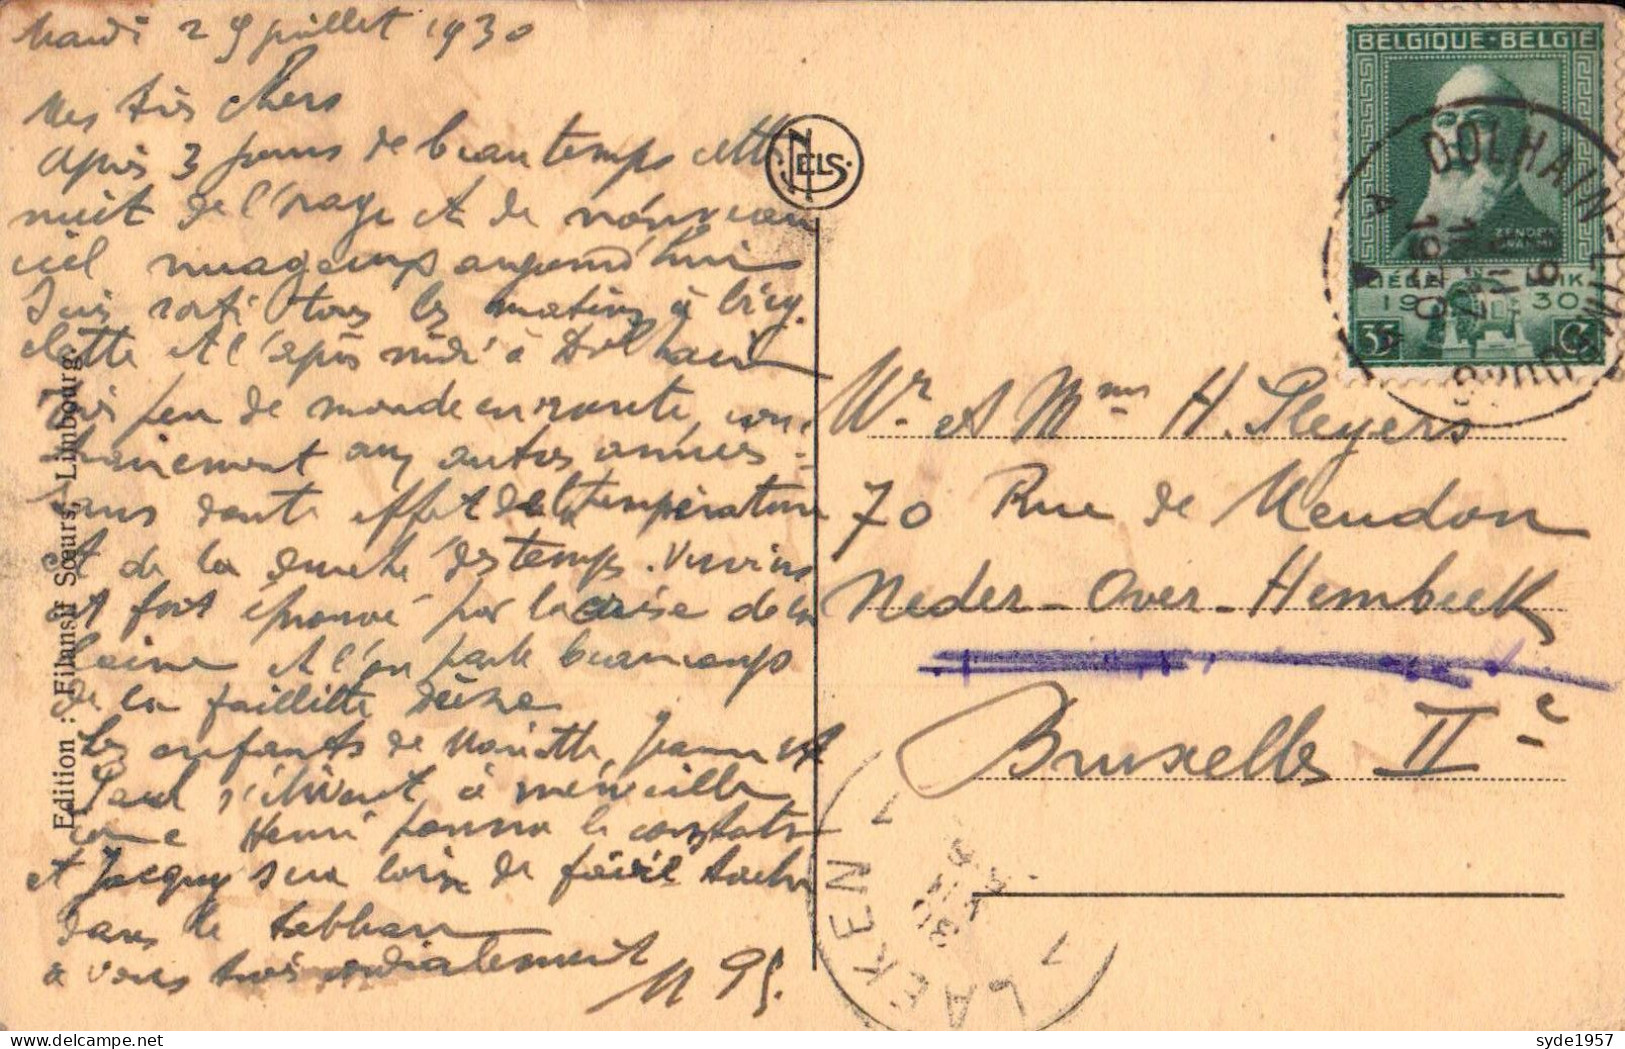 Mardi 29 juillet 1930
Mes très chers
Après 3 jours de beau temps cette
nuit de l'orage et de nouveau
ciel nuageux aujourd'hui
Suis sorti tous les matins à bicy-
clette et l'après midi à Dolhain
très peu de monde en route, con-
trairement aux autres années -
sans doute effet de la température
et de la des temps. Verviers
est fort éprouvé par la crise de la
laine et l'on parle beaucoup
de la faillite
Les enfants de Mariette, Jeanne et
Paul s'élèvent à merveille
come Henri pourra le constater
et Jacquy sera loin de faire tache
dans le tableau
à vous trois cordialement
NELS
Edition : Filansif Sœurs, Limbourg.
BELGIQUE-BELGIE
ZENOBE
GRAMME
LIEGE LUIK
1930
35 C
DOLHAIN-LIMBOURG
A A
1930
Mr et Mme H. Pleyers
70 Rue de Meudon
Neder-Over-Hembeek
Bruxelles IIe
LAEKEN 1
1
30
syde1957